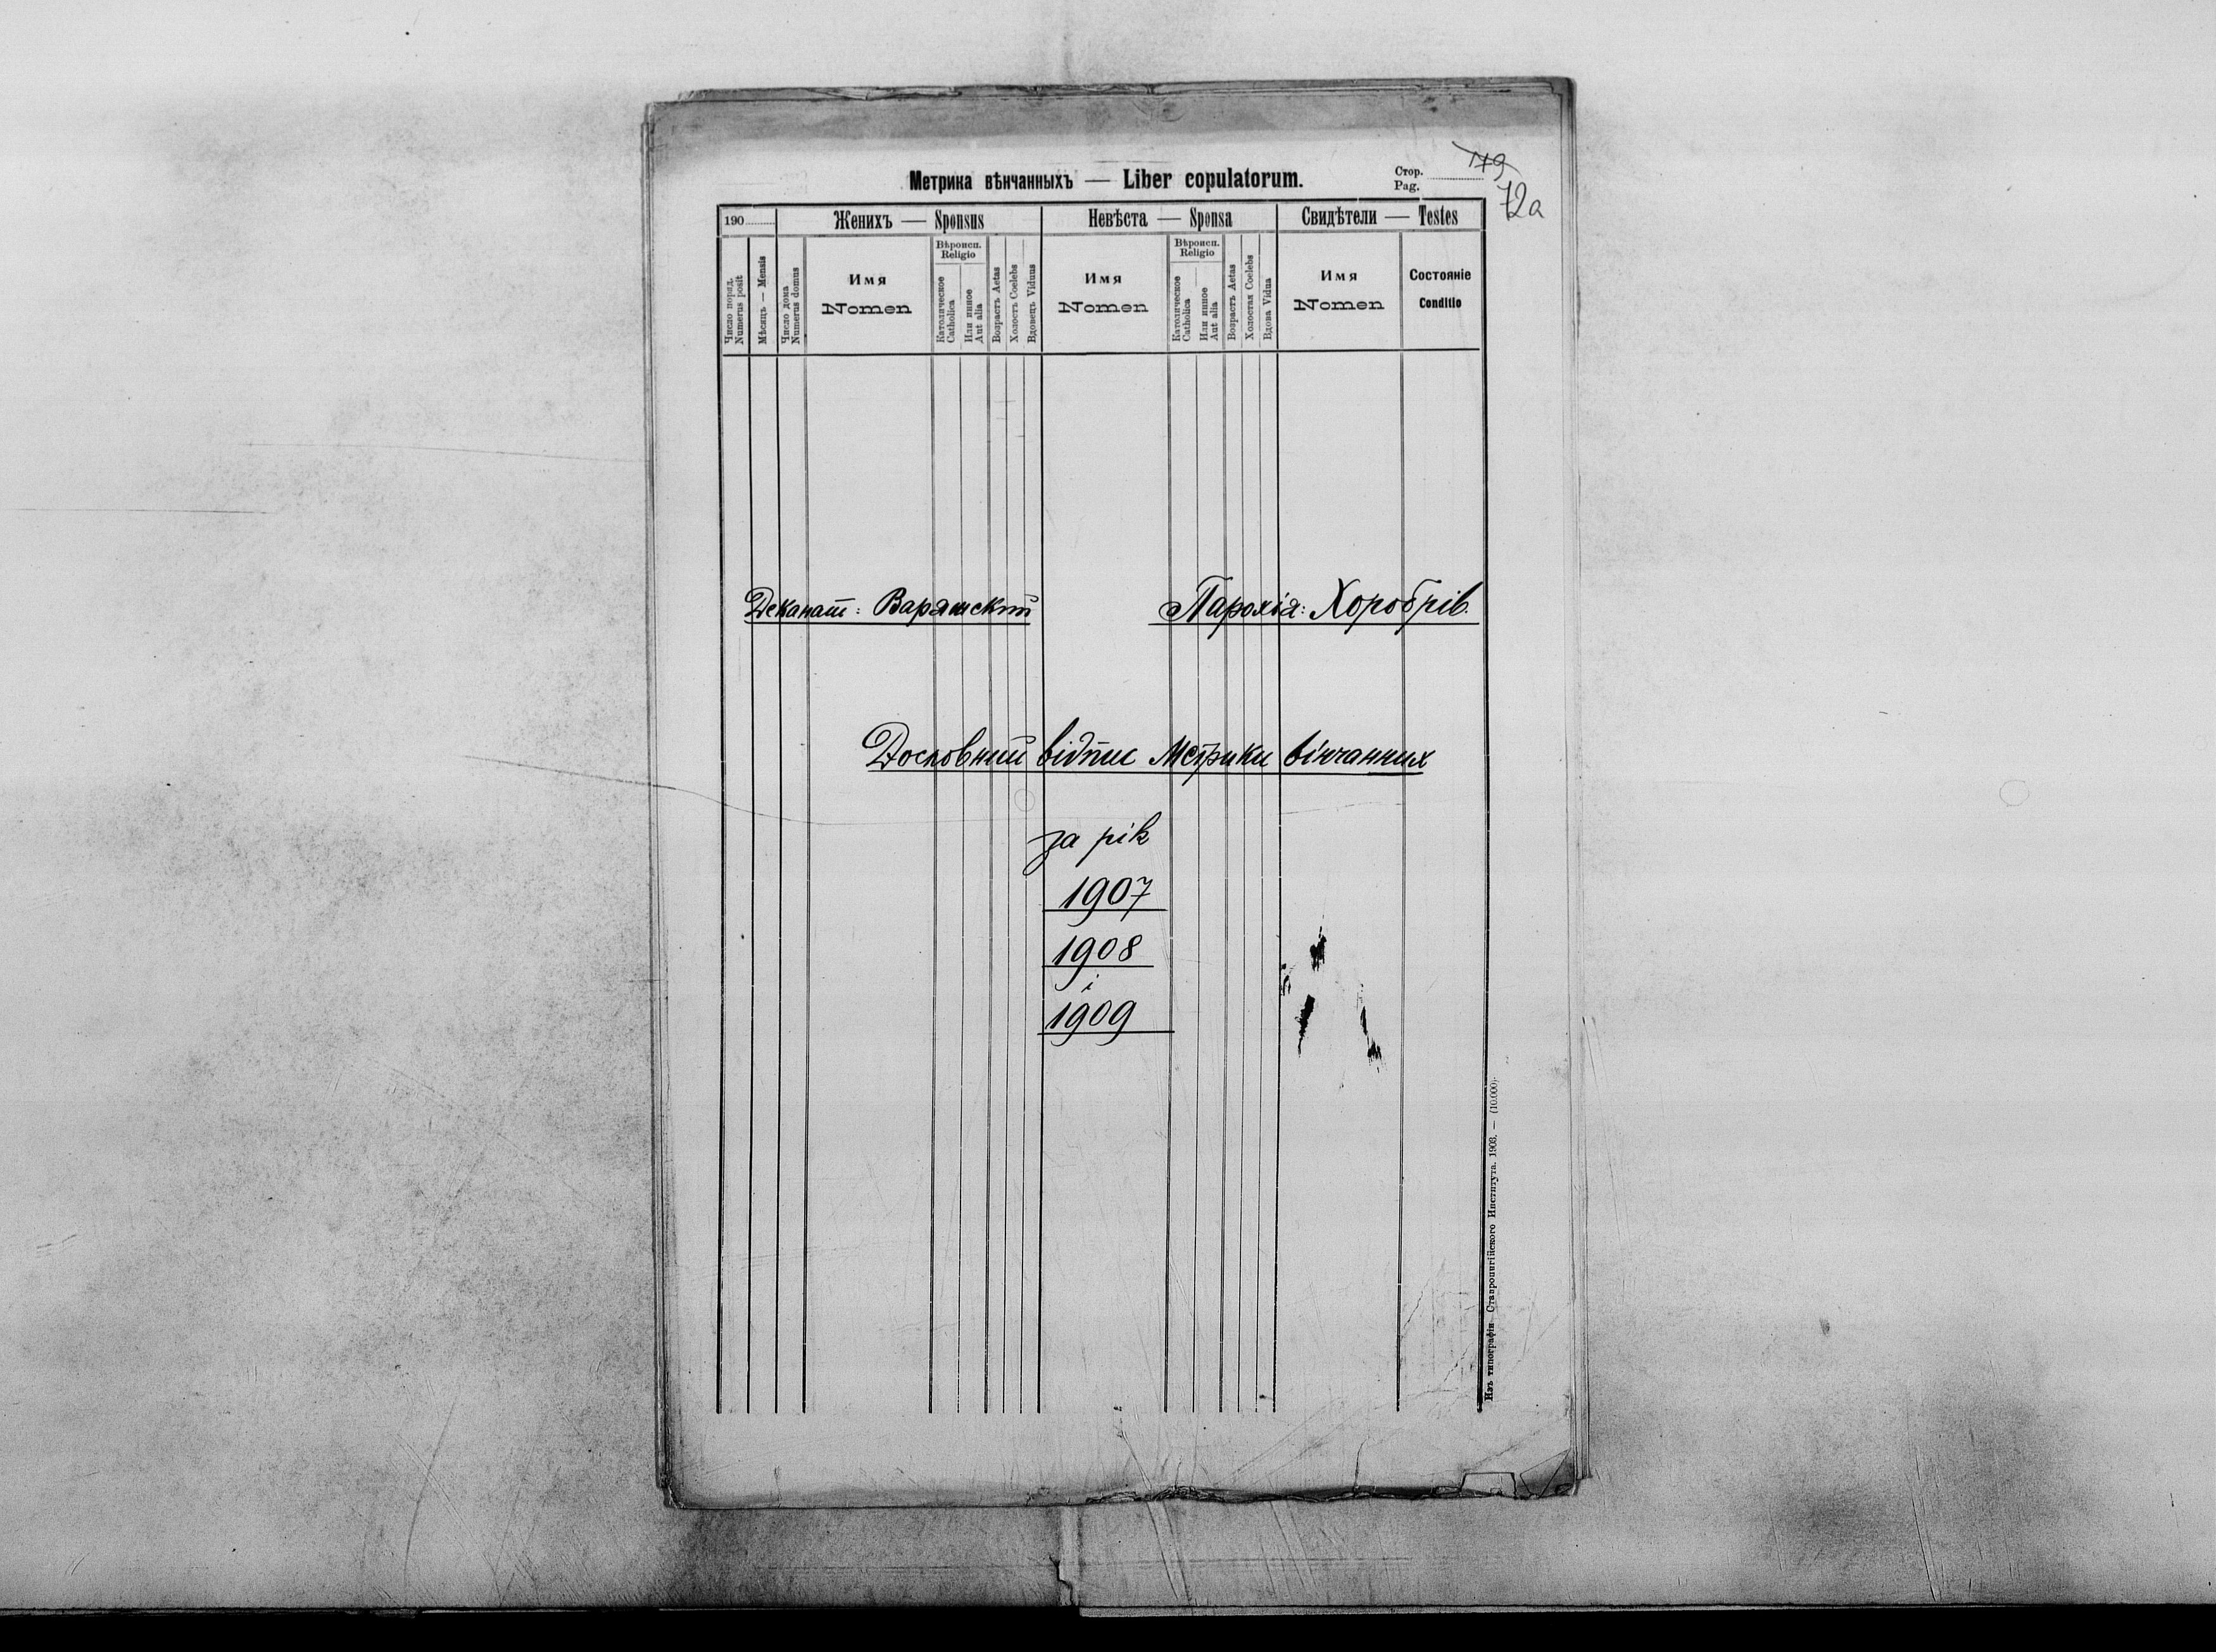 Метрика вѣнчанныхъ — Liber copulatorum.
Стор.
Pag.
179
72a
190
Женихъ — Sponsus
Невѣста — Sponsa
Свидѣтели — Testes
Число поряд.
Numerus posit
Мѣсяцъ — Mensis
Число дома
Numerus domus
Имя
Nomen
Вѣроисп.
Religio
Католическое
Catholica
Или инное
Aut alia
Возрастъ Aetas
Холостъ Coelebs
Вдовецъ Viduus
Имя
Nomen
Вѣроисп.
Religio
Католическое
Catholica
Или инное
Aut alia
Возрастъ Aetas
Холостая Coelebs
Вдова Vidua
Имя
Nomen
Состояніе
Conditio
Деканат: Варяжский
Парохія: Хоробрів.
Дословний відпис Метрики вінчанних
за рік
1907
1908
і
1909
Изъ типографіи Ставропигійского Института. 1903. — (10.000).